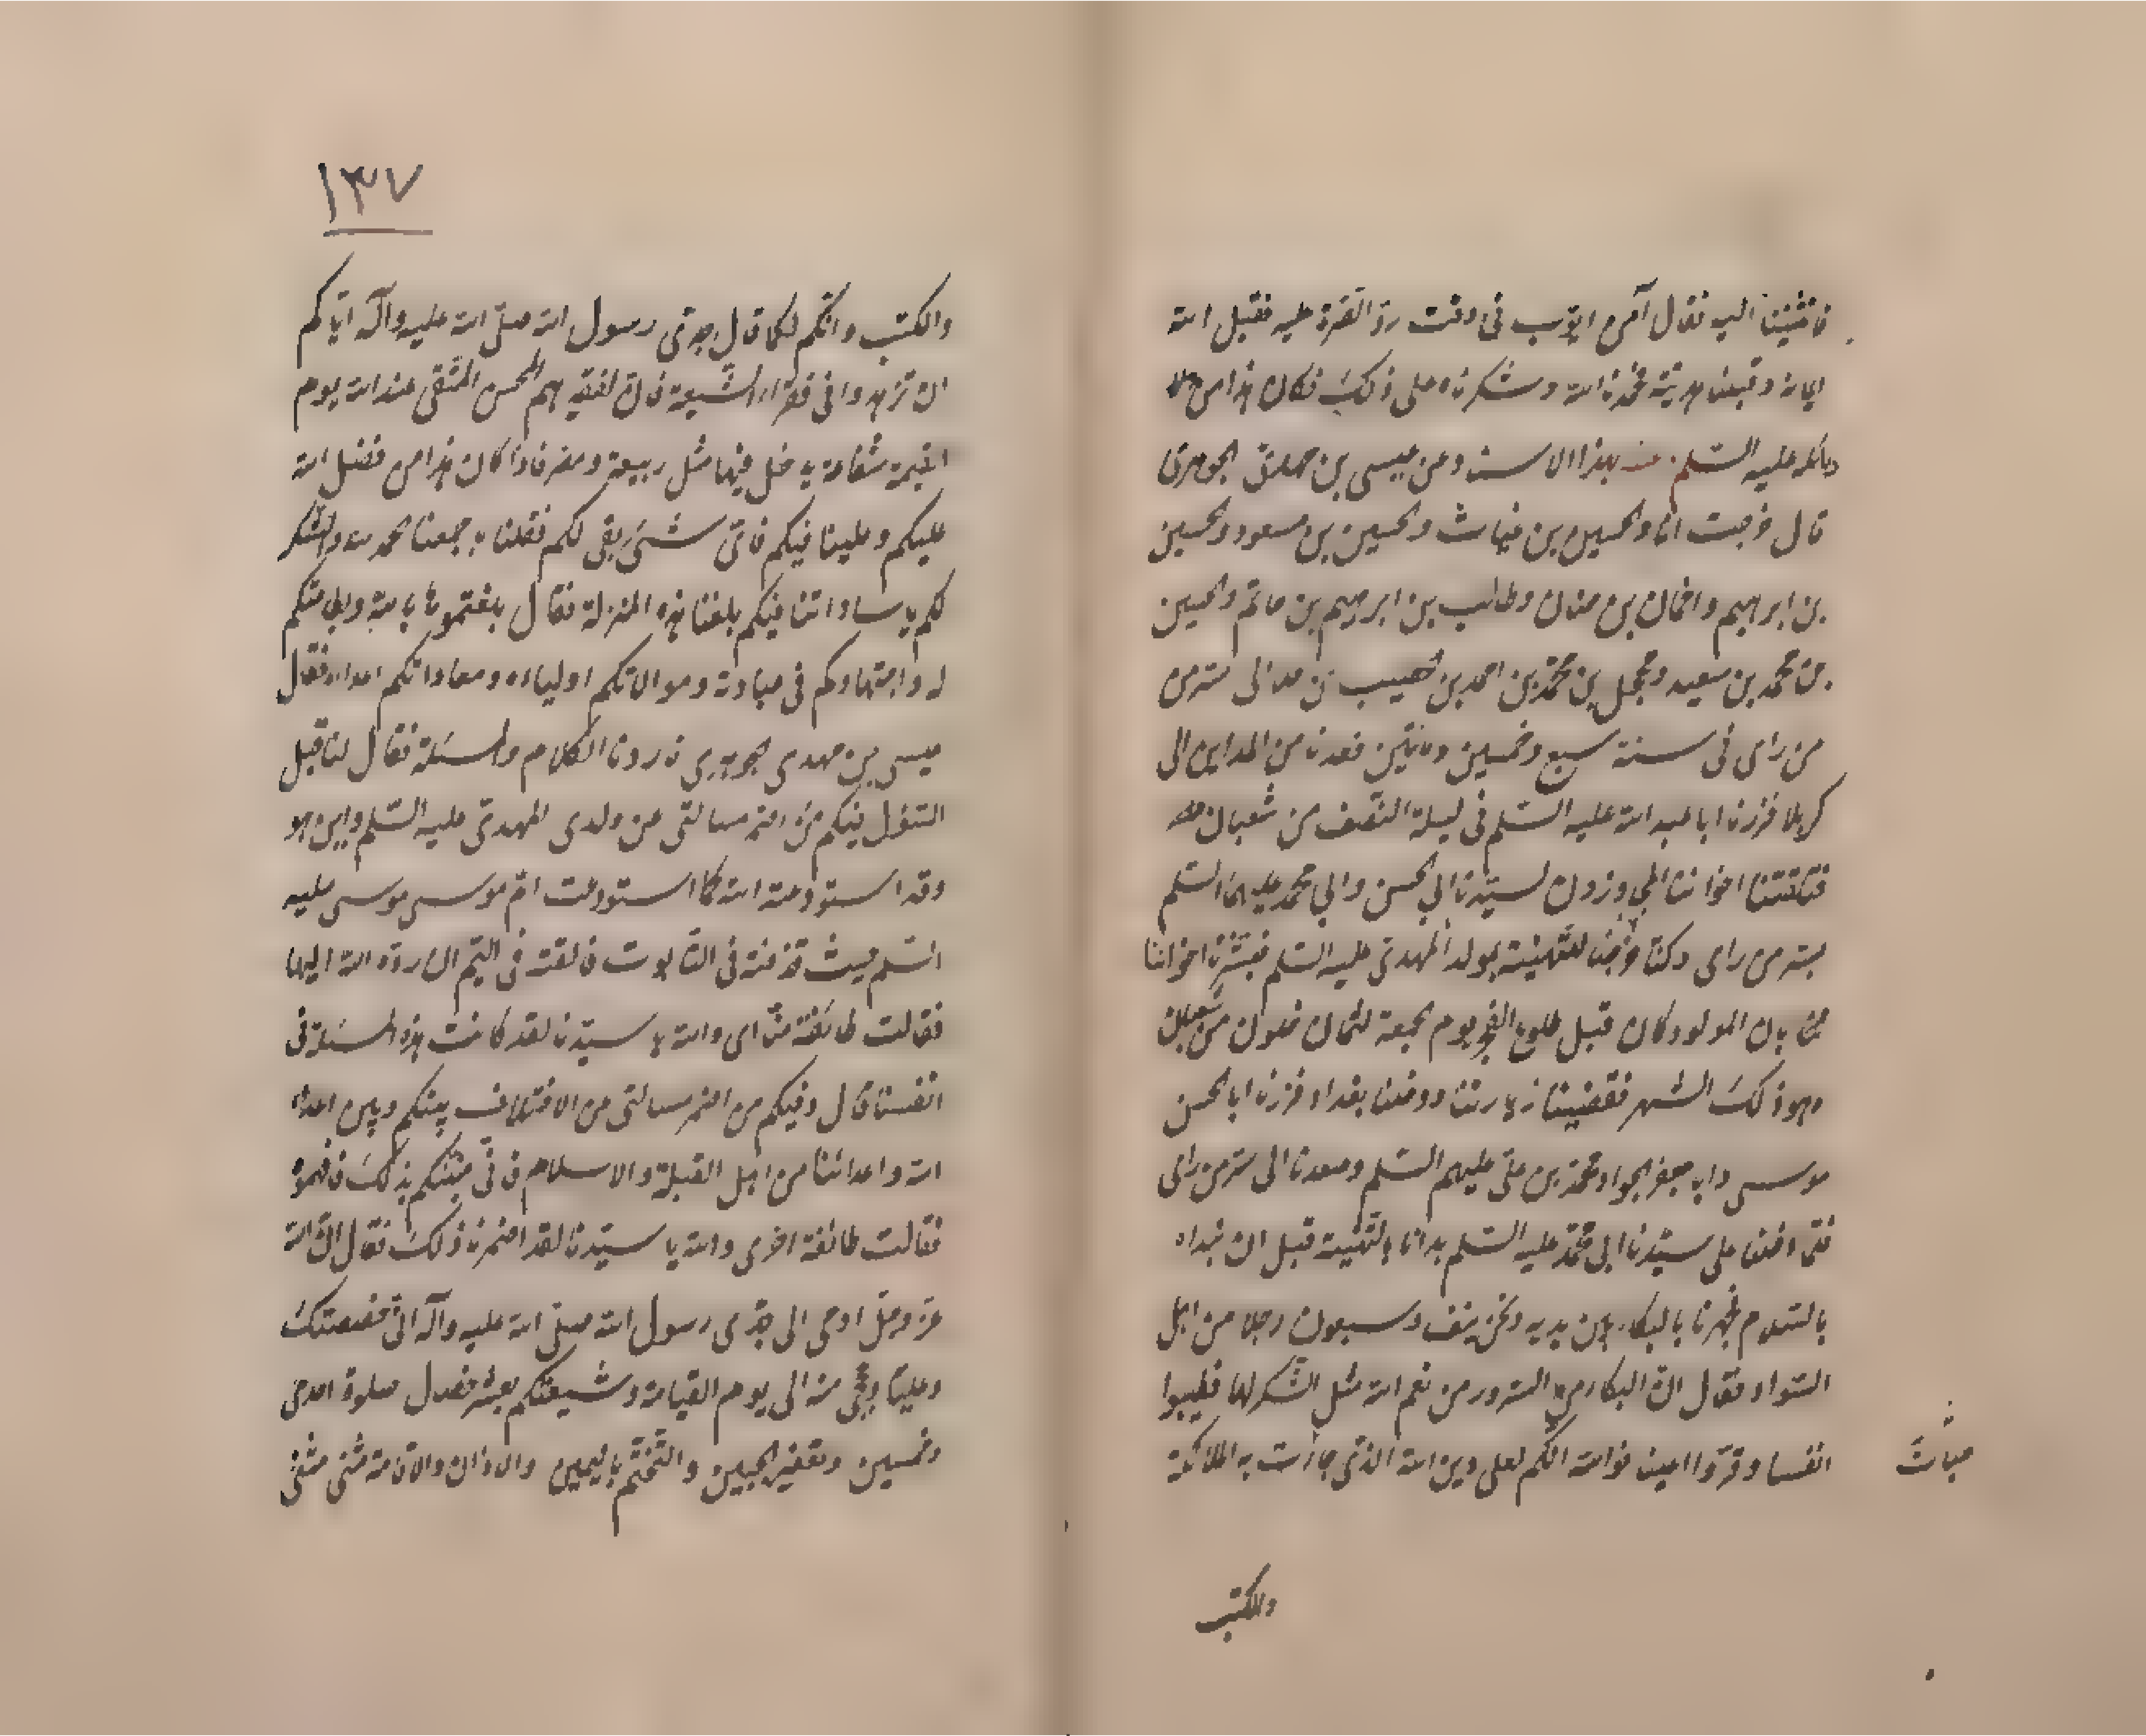 فانثنينا اليه فقال آمن ايوب فى وقت ردّ القرة عليه فقبل الله
ايمانه وقبلنا هديّته فحمدنا الله وشكرناه على ذلك فكان هذا من
دلائله عليه السّلم وعن عيسى بن مهدىّ الجوهرى
قال خرجت انا والحسين بن غياث والحسين بن مسعود والحسين
بن ابراهيم واحمد بن حنان وطالب بن ابراهيم بن حاتم والحسين
بن محمد بن سعيد ومحجل بن محمّد بن احمد بن الحصيب الى سرّ من
من راى فى سنة سبع وخمسين ومأتين فعدنا من المداين الى
كربلا فزرنا ابا عبد الله عليه السّلم فى ليلة النّصف من شعبان
فتلقتنا اخواننا المجاوزون لسيّدنا ابي الحسن وابي محمد عليهما السّلم
بسر من راى وكنّا خرجنا للتّهنية بمولد المهدىّ عليه السّلم فبشّرنا اخواننا
بان المولود كان قبل طلوع الفجر يوم الجمعة لثمان خلون من شعبان
وهو ذلك الشهر فقضينا زيارتنا ودخلنا بغداد فزرنا ابا الحسن
موسى وابا جعفر الجواد محمّد بن علىّ عليهم السّلم وصعدنا الى سرّ من راى
فلمّا دخلنا على سيّدنا ابى محمّد عليه السّلم بدانا بالتّهنية قبل ان نبداه
بالسّلام فجهرنا بالبكاء بين يديه ونحن نيف وسبعون رجلا من اهل
السّواد فقال انّ البكاء من السّرور من نعم الله مثل الشّكر لها فطيبوا
انفسا وقرّوا اعينا فوالله انّكم لعلى دين الله الذّى جاءت به الملائكة
والكتب
١٣٧
والكتب وانّكم لكما قال جدّى رسول الله صلّى الله عليه وآله ايّاكم
ان تزهدوا فى فقراء الشّيعة فانّ لفقيرهم المحسن المتّقى عند الله يوم
القيمة شفاعة يدخل فيها مثل ربيعة ومضر فاذا كان هذا من فضل الله
عليكم وعلينا فيكم فاىّ شئ بقى لكم فقلنا باجمعنا الحمد لله والشّكر
لكم يا ساداتنا فبكم بلغنا هذه المنزلة فقال بلغتموها بالله وبطاعتكم
له واجتهادكم فى عبادته وموالاتكم اولياءه ومعاداتكم اعداءه فقال
عيسى بن مهدى الجوهرى فاردنا الكلام والمسئلة فقال لنا قبل
السّؤال فيكم من اضمر مسالتى عن ولدى المهدىّ عليه السّلم واين هو
وقد استودعته الله كما استودعت امّ موسى موسى عليه
السّلم حيث قذفته فى التّابوت فالقته فى اليّم الى ان ردّه الله اليها
فقالت طائفة منّا اى والله يا سيّدنا لقد كانت هذه المسئلة فى
انفسنا قال وفيكم من اضمر مسالتى عن الاختلاف بينكم وبين اعداء
الله واعدائنا من اهل القبلة والاسلام فانّى منبئكم بذلك فافهموه
فقالت طائفة اخرى والله يا سيّدنا لقد اضمرنا ذلك فقال انّ الله
عزّ وجلّ اوحى الى جدّى رسول الله صلّى الله عليه وآله انّى خصصتك
وعليّا وحججى منه الى يوم القيامة وشيعتكم بعشر خصال صلوة احدى
وخمسين وتعفير الجبين والتّختّم باليمين والاذان والاقامة مثنى مثنى